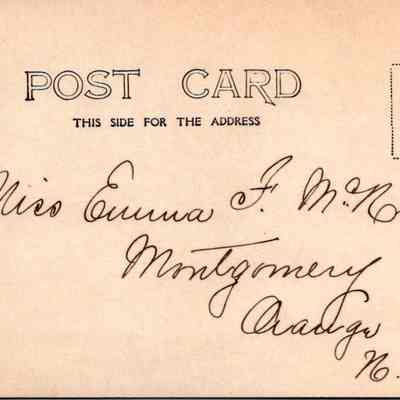 POST CARD
THIS SIDE FOR THE ADDRESS
Miss Emma F. McN
Montgomery
Orange
N.